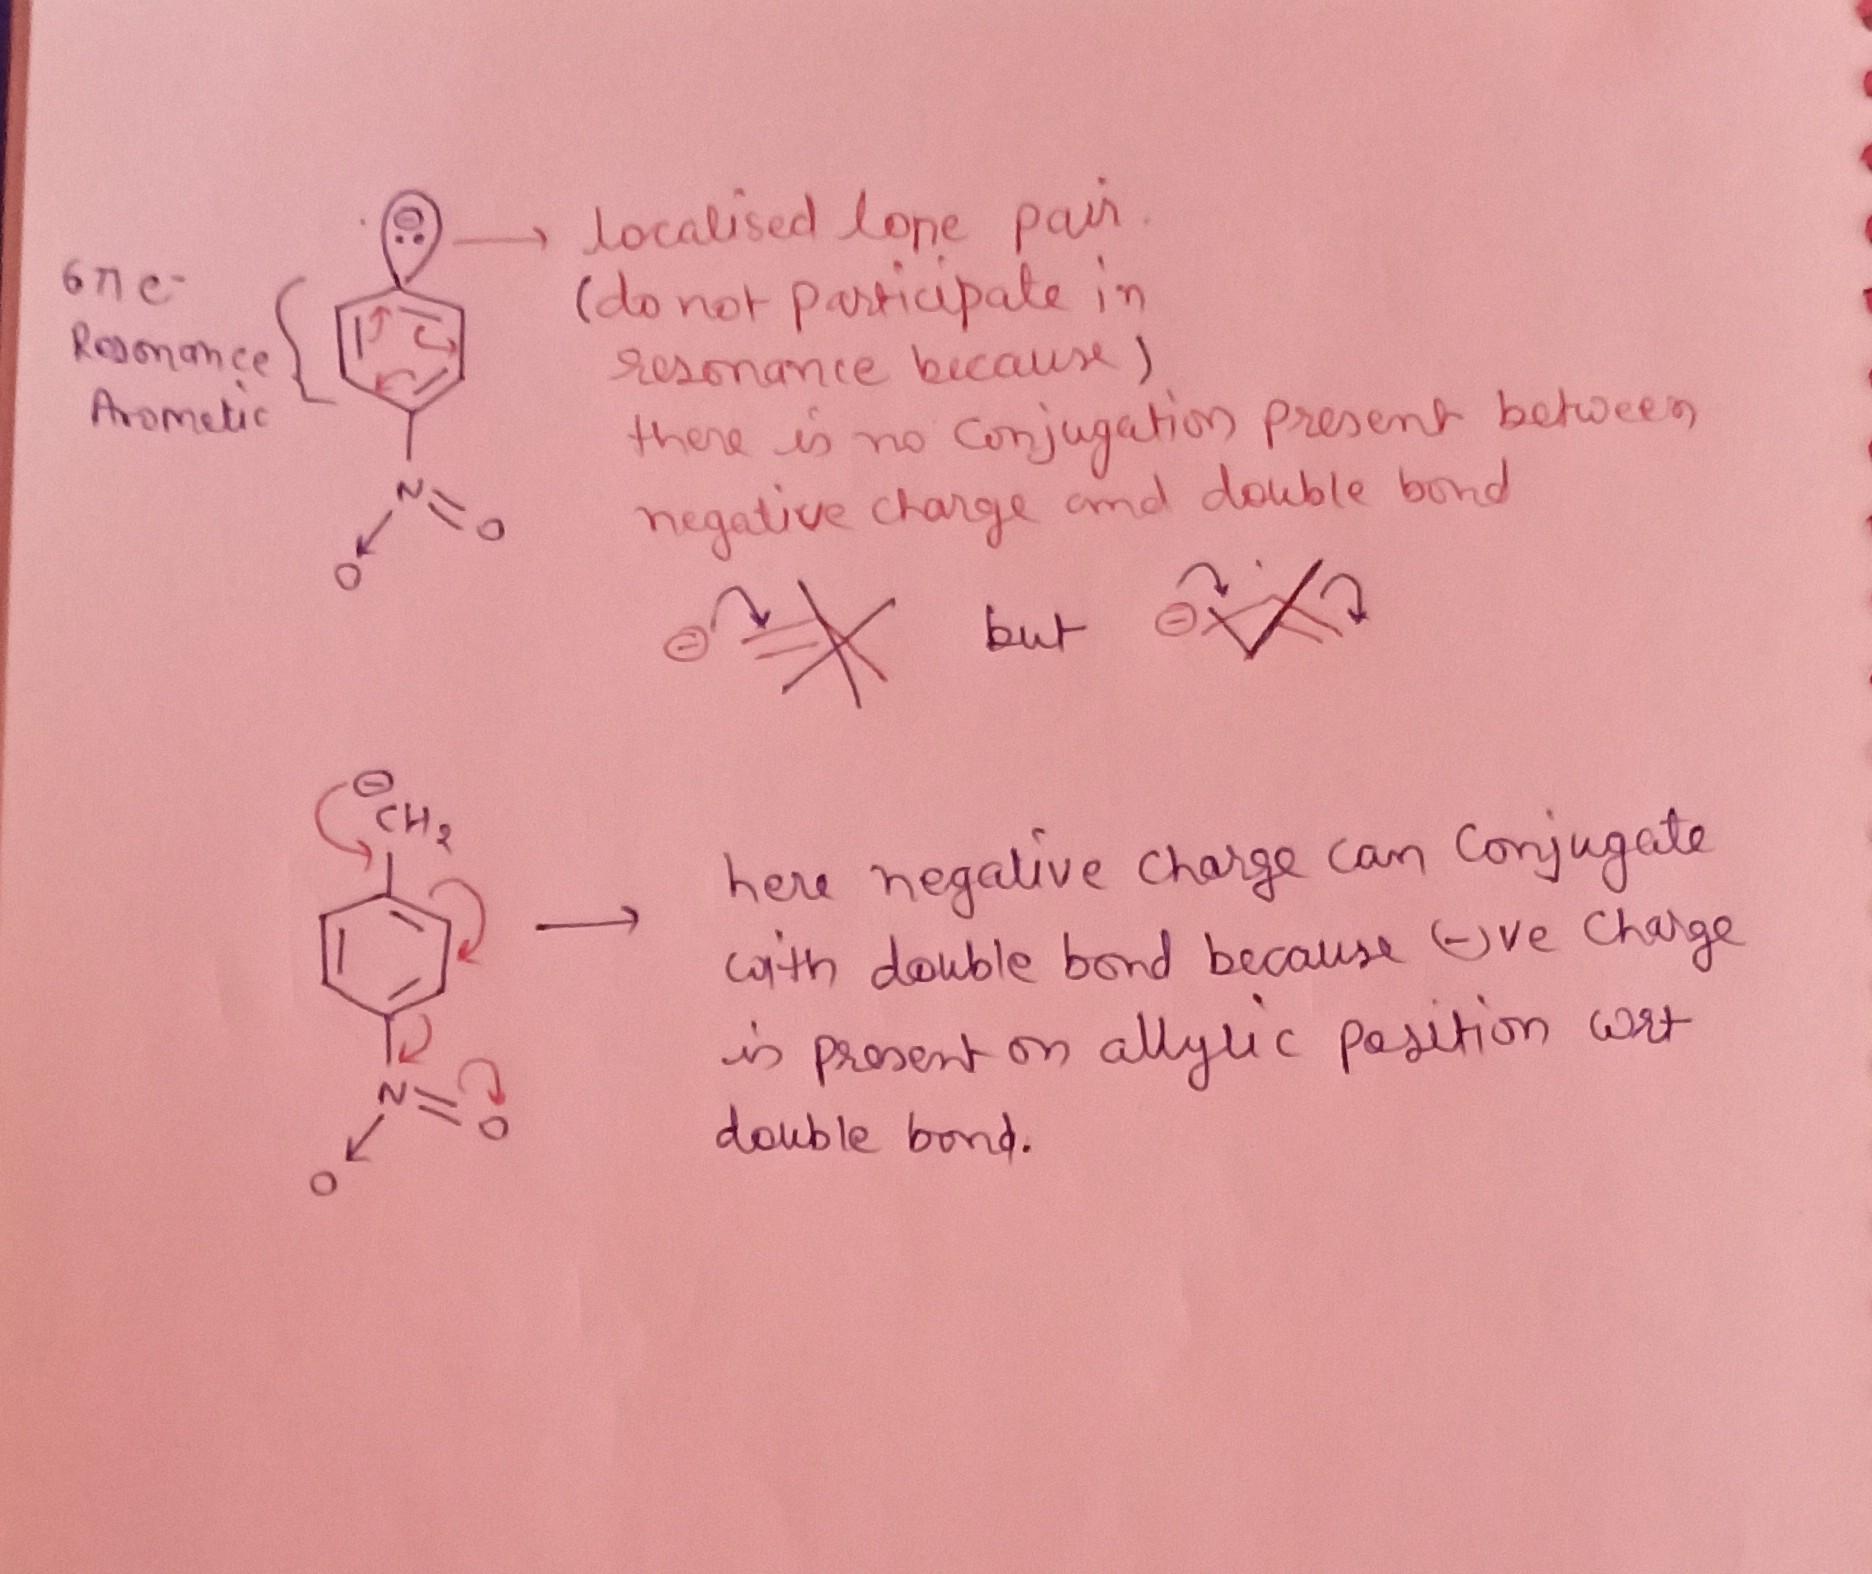 ⊖
localised lone pair.
6π e-
(do not participate in
Resonance
resonance because)
Arometic
there is no conjugation present between
N
negative charge and double bond
O
O
⊖
but
⊖
⊖
CH2
here negative charge can conjugate
with double bond because (-)ve charge
is present on allylic position wrt
N
O
double bond.
O